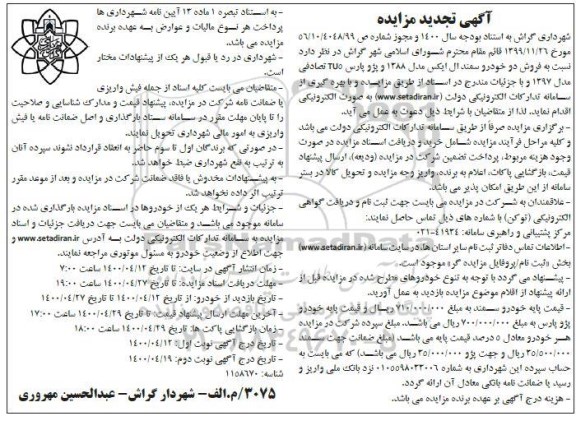 آگهی تجدید مزایده
شهرداری گراش به استناد بودجه سال ۱۴۰۰ و مجوز شماره ص ۰۵/۱۰/۴۰۴۸/۹۹
مورخ ۱۳۹۹/۱۱/۲۶ قائم مقام محترم شورای اسلامی شهر گراش در نظر دارد
نسبت به فروش دو خودرو سمند ال ایکس مدل ۱۳۸۸ و پژو پارس TU5 تصادفی
مدل ۱۳۹۷ و با جزئیات مندرج در اسناد از طریق مزایده و با بهره گیری از
سامانه تدارکات الکترونیکی دولت (www.setadiran.ir) به صورت الکترونیکی
اقدام نماید. لذا از متقاضیان با شرایط ذیل دعوت به عمل می آید.
- برگزاری مزایده صرفاً از طریق سامانه تدارکات الکترونیکی دولت می باشد
و کلیه مراحل فرآیند مزایده شامل خرید و دریافت اسناد مزایده در صورت
وجود هزینه مربوط، پرداخت تضمین شرکت در مزایده (ودیعه)، ارسال پیشنهاد
قیمت، بازگشایی پاکات، اعلام به برنده، واریز وجه مزایده و تحویل کالا در بستر
سامانه از این طریق امکان پذیر می باشد.
- علاقمندان به شرکت در مزایده می بایست جهت ثبت نام و دریافت گواهی
الکترونیکی (توکن) با شماره های ذیل تماس حاصل نمایند:
مرکز پشتیبانی و راهبری سامانه: ۴۱۹۳۴-۰۲۱
- اطلاعات تماس دفاتر ثبت نام سایر استان ها، در سایت سامانه (www.setadiran.ir)
بخش «ثبت نام/پروفایل مزایده گر» موجود است.
- پیشنهاد می گردد با توجه به تنوع خودروهای مطرح شده در مزایده قبل از
ارائه پیشنهاد از اقلام موضوع مزایده بازدید به عمل آورید.
- قیمت پایه خودرو سمند به مبلغ ۷۱۰/۰۰۰/۰۰۰ ریال و قیمت پایه خودرو
پژو پارس به مبلغ ۷۰۰/۰۰۰/۰۰۰ ریال می باشد. مبلغ سپرده شرکت در مزایده
هر خودرو معادل ۵ درصد قیمت پایه می باشد (مبلغ ضمانت جهت سمند
۳۵/۵۰۰/۰۰۰ ریال و جهت پژو ۳۵/۰۰۰/۰۰۰ ریال می باشد) که می بایست به
حساب سپرده این شهرداری به شماره ۰۱۰۵۵۹۸۰۲۳۰۰۶ نزد بانک ملی واریز و
رسید یا ضمانت نامه بانکی معادل آن ارائه گردد.
- هزینه درج آگهی بر عهده برنده مزایده می باشد.
- به استناد تبصره ۱ ماده ۱۳ آیین نامه شهرداری ها
پرداخت هر نوع مالیات و عوارض به عهده برنده
مزایده می باشد.
- شهرداری در رد یا قبول هر یک از پیشنهادات مختار
است.
- متقاضیان می بایست کلیه اسناد از جمله فیش واریزی
یا ضمانت نامه شرکت در مزایده، پیشنهاد قیمت و مدارک شناسایی و صلاحیت
را تا پایان مهلت مقرر در سامانه ستاد بارگذاری و اصل ضمانت نامه یا فیش
واریزی به امور مالی شهرداری تحویل نمایند.
- در صورتی که برندگان اول تا سوم حاضر به انعقاد قرارداد نشوند سپرده آنان
به ترتیب به نفع شهرداری ضبط خواهد شد.
- به پیشنهادات مخدوش یا فاقد ضمانت شرکت در مزایده و بعد از موعد مقرر
ترتیب اثر داده نخواهد شد.
- جزئیات و شرایط هر یک از خودروها در اسناد مزایده بارگذاری شده در
سامانه موجود می باشد و متقاضیان می بایست جهت دریافت جزئیات و اسناد
مزایده به سامانه تدارکات الکترونیکی دولت به آدرس www.setadiran.ir و
جهت اطلاع از وضعیت خودرو به مسئول موتوری مراجعه نمایند.
- زمان انتشار آگهی در سایت: تا تاریخ ۱۴۰۰/۰۴/۱۲ ساعت ۷:۰۰
- مهلت دریافت اسناد مزایده: تا تاریخ ۱۴۰۰/۰۴/۲۷ ساعت ۱۹:۰۰
- تاریخ بازدید از خودرو: از تاریخ ۱۴۰۰/۰۴/۱۲ تا تاریخ ۱۴۰۰/۰۴/۲۷
- آخرین مهلت ارسال پیشنهاد قیمت: تا تاریخ ۱۴۰۰/۰۴/۲۹ ساعت ۱۷:۰۰
- زمان بازگشایی پاکت ها: تاریخ ۱۴۰۰/۰۴/۲۹ ساعت ۱۸:۰۰
- تاریخ درج آگهی نوبت اول: ۱۴۰۰/۰۴/۱۲
- تاریخ درج آگهی نوبت دوم: ۱۴۰۰/۰۴/۱۹
شناسه: ۱۱۵۸۶۷۰
۳۰۷۵/م.الف- شهردار گراش- عبدالحسین مهروری